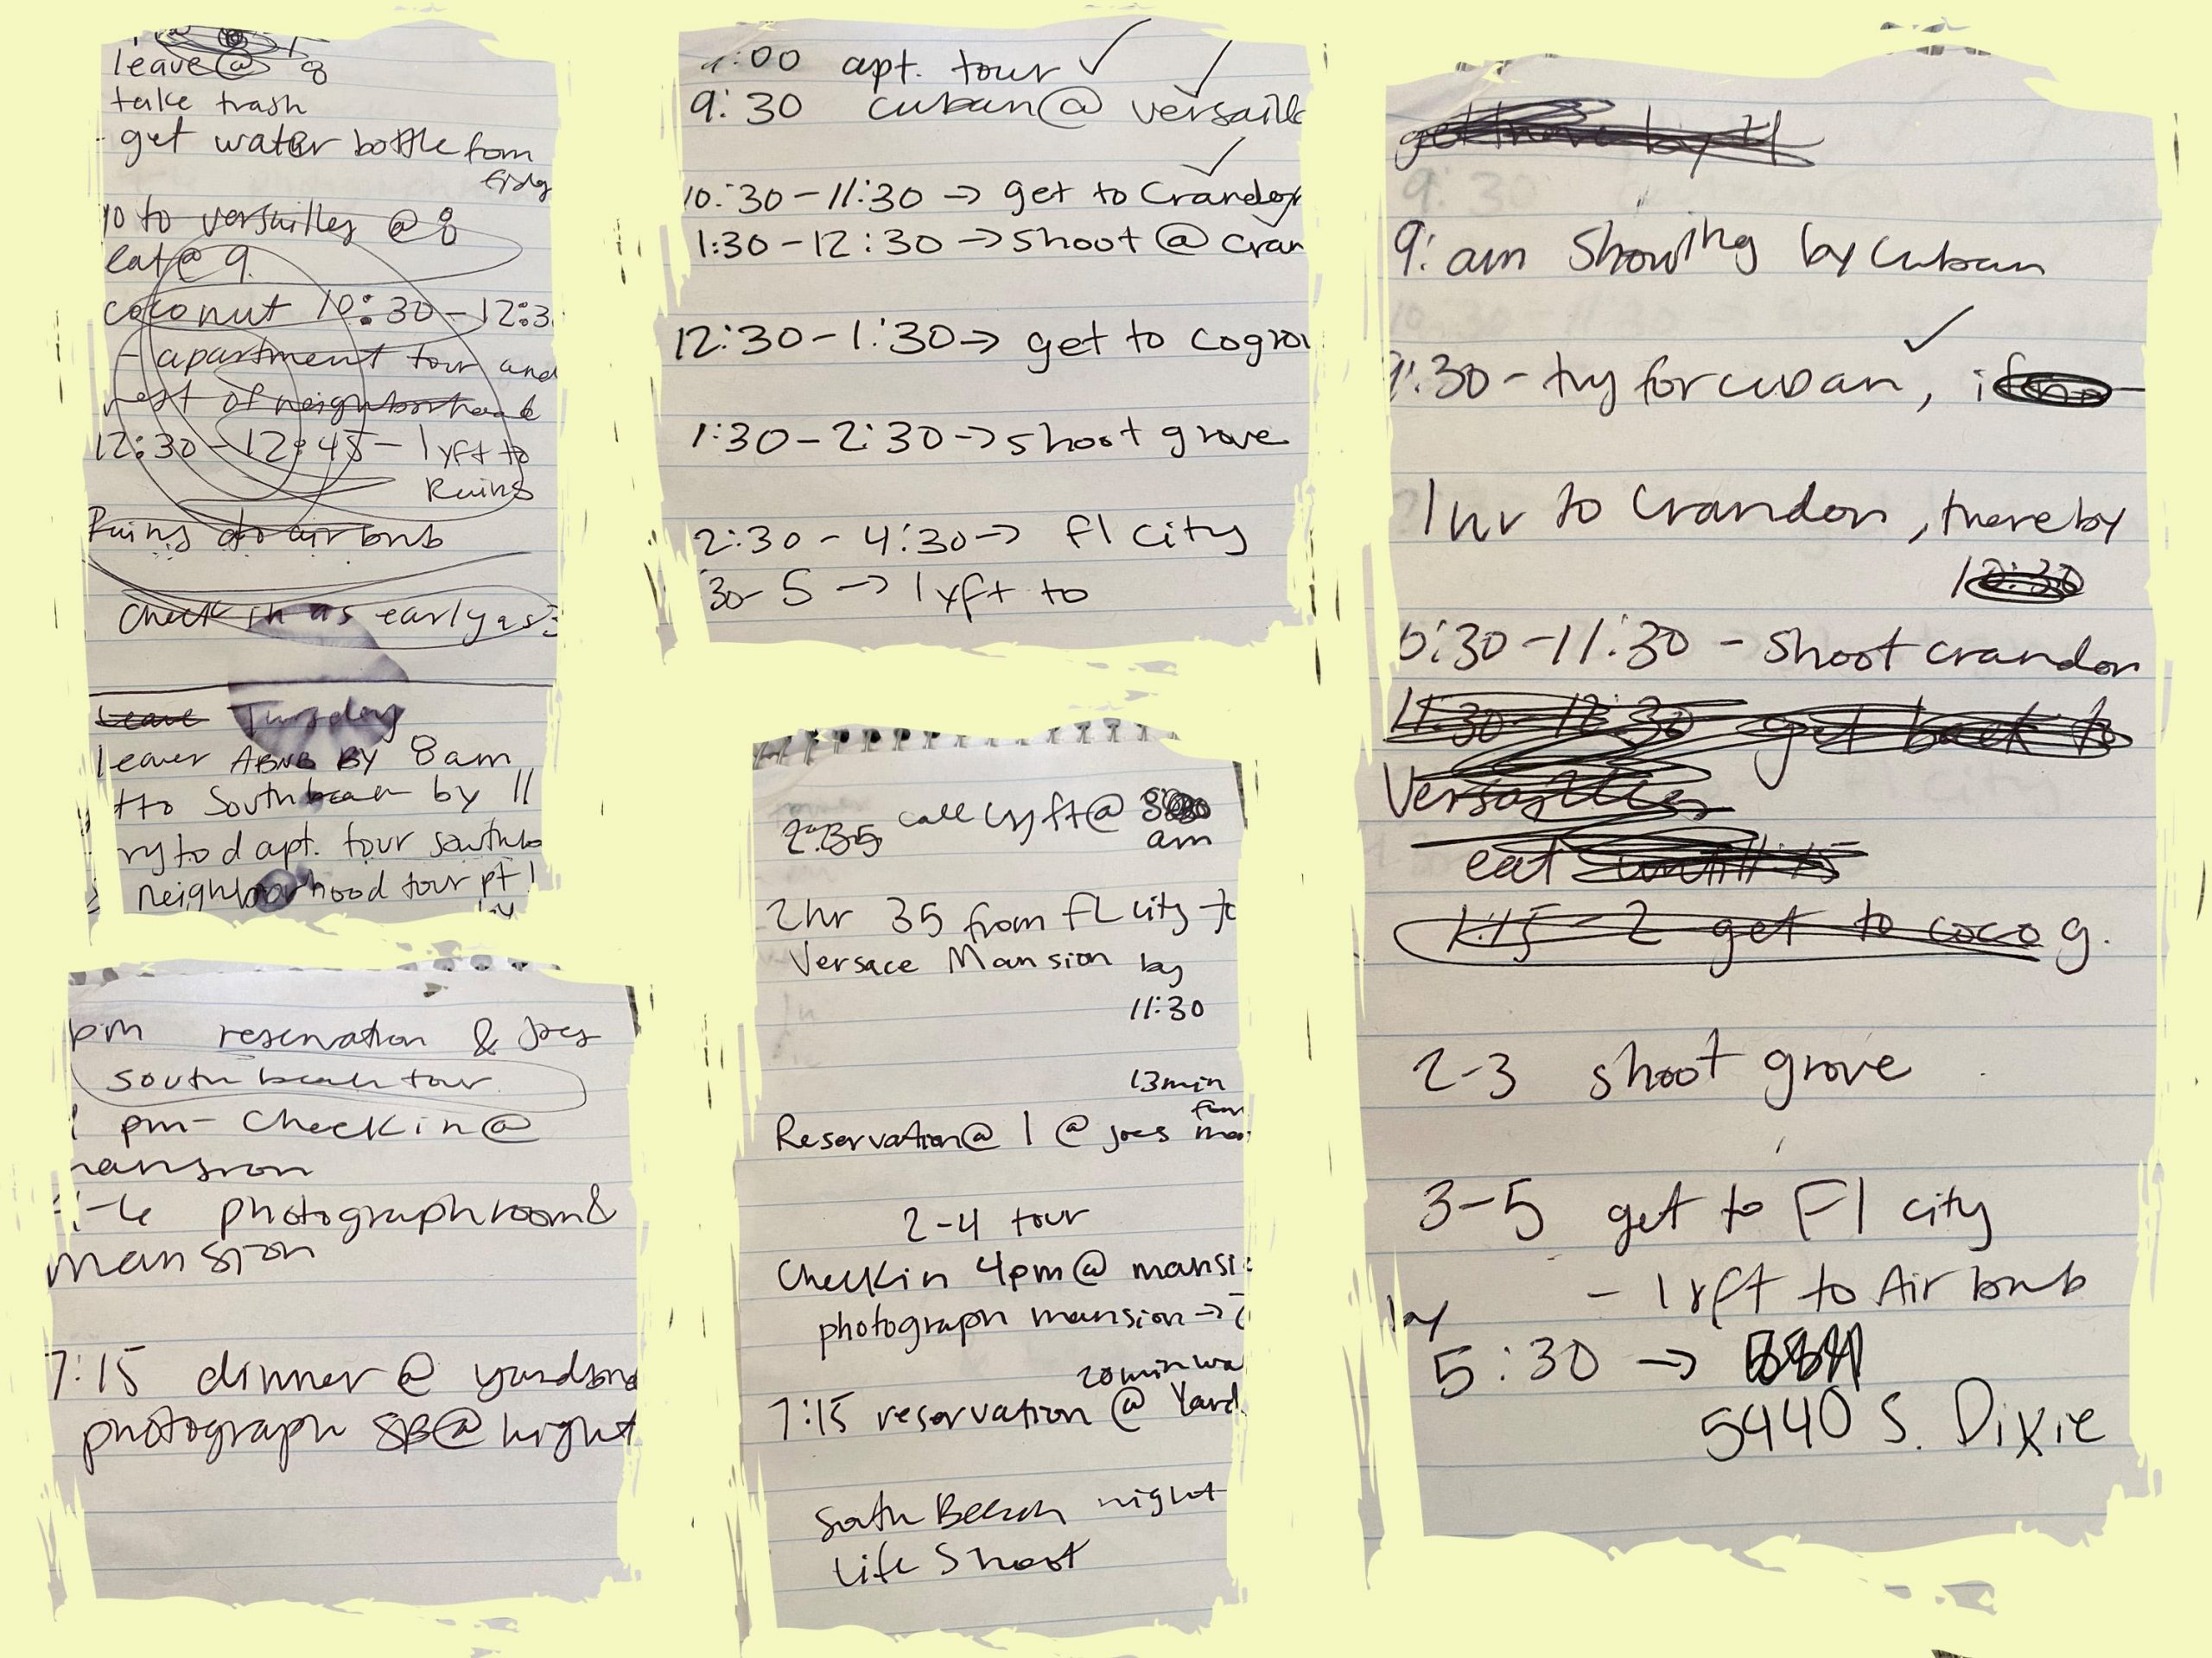 leave @ 8
take trash
- get water bottle from
fridg
to versailles @ 8
eat @ 9
coconut 10:30-12:3
- apartment tour and
rest of neighborhood
12:30-12:45- lyft to
Ruins
Ruins airbnb
check in as early as
Leave Tuesday
leave ABNB BY 8am
to South beach by 11
apt. tour
neighbourhood tour pt 1
:00 apt. tour ✓
9:30 cuban @ versaill
10:30-11:30 → get to Crandon
1:30-12:30 → shoot @ cran
12:30-1:30 → get to cogrov
1:30-2:30 → shoot grove
2:30-4:30 → Fl city
30-5 → lyft to
by
9: am showing by cuban
9:30 - try for cuban, if
1 hr to Crandon, there by
10:30
0:30-11:30 - shoot crandon
11:30-12:30 get back to
Versailles
eat until 1:15
1:15-2 get to coco g.
2-3 shoot grove
3-5 get to Fl city
- lyft to Air bnb
by
5:30 →
5440 S. Dixie
pm reservation & Joes
south beach tour
pm- Check in @
mansion
photograph room &
mansion
7:15 dinner @ yardbird
photograph SB @ night
2:35 call lyft @ 8
am
2hr 35 from FL city to
Versace Mansion by
11:30
13min
from
Reservation @ 1 @ joes
2-4 tour
Check in 4pm @ mansi
photograph mansion →
20 min wa
7:15 reservation @ Yard
South Beach night
Life Shoot